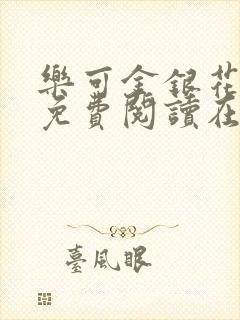 樂可金銀花
免費閱讀在
臺風眼